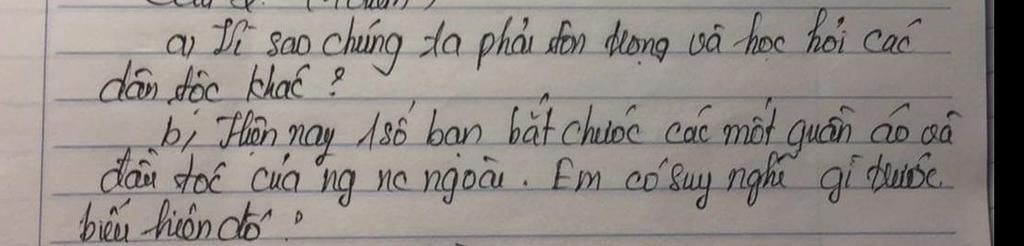 a) Vì sao chúng ta phải tôn trọng và học hỏi các
dân tộc khác ?
b) Hiện nay 1 số bạn bắt chước các mốt quần áo và
đầu tóc của ng nc ngoài. Em có suy nghĩ gì trước
biểu hiện đó ?